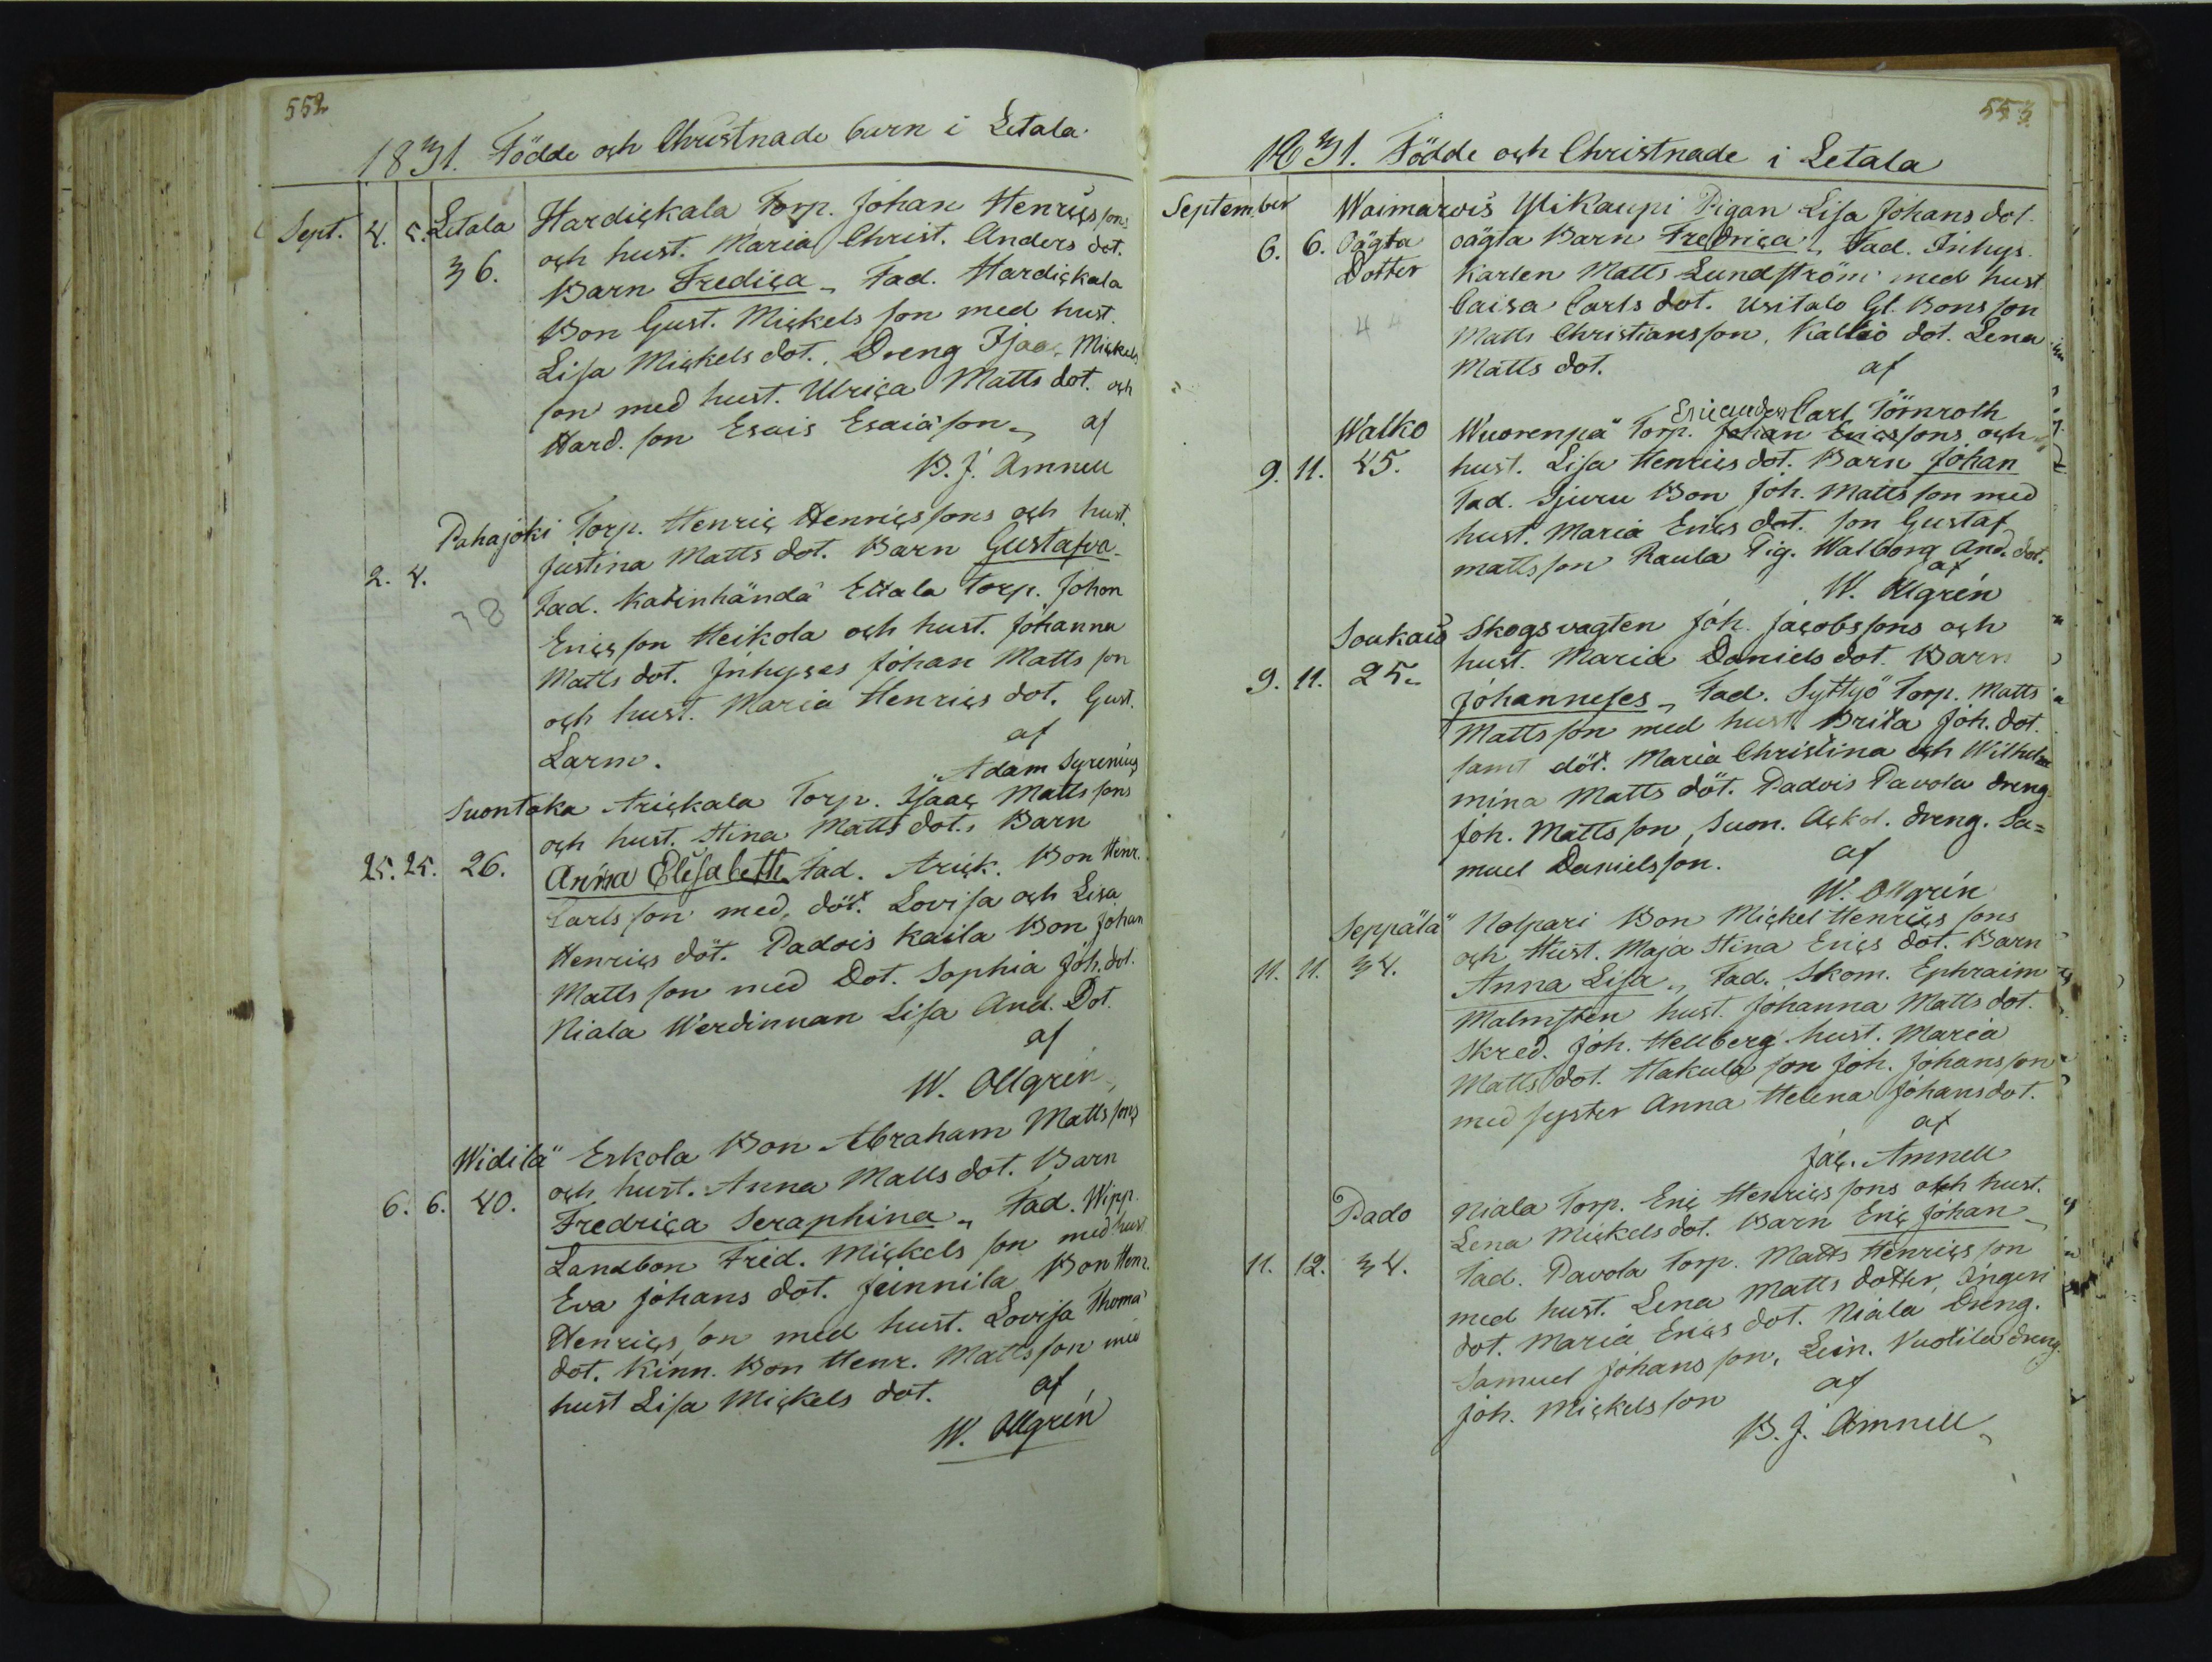 552
1831. Födde och Christnade barn i Letala
Sept. 4. 5. Letala Hardickala Torp. Johan Henrics sons
och hust. Maria Christ. Anders dot.
36. Barn Frediça Fad. Hardickala
Bon Gust. Mickels son med hust.
Lisa Mickels dot. Dreng Isaac Mickels
son med hust. Ulrica Matts dot. och
Hard. son Esais Esaiæson af
B. J. Amnell
Pahajoki Torp. Henric Henrics sons och hust.
Justina Matts dot. Barn Gustafva
2. 4. Fad. Katinhända Torp. Johan
38
Erics son Heikola och hust. Johanna
Matts dot. Inhyses Johan Matts son
och hust. Maria Henrics dot. Gust.
Larm. af
Adam Syrenius
Suontaka Arickala Torp. Isaac Matts sons
och hust. Stina Matts dot. Barn
25. 25. 26. Anna Elisabeth Fad. Arick. Bon Henr.
Carls son med döt. Lovisa och Lisa
Henrics döt. Padois Kaila Bon Johan
Matts son med Dot. Sophia Joh. dot.
Niala Werdinnan Lisa And. Dot.
af
W. Ollgrén
Widilä Erkola Bon Abraham Matts sons
och hust. Anna Matts dot. Barn
6. 6. 40. Fredrica Seraphina Fad. Wipp.
Landbon Fred. Mickels son med hust.
Eva Johans dot. Jeinnila Bon Henr.
Henrics son med hust. Lovisa Thomæ
dot. Kinn. Bon Henr. Matts son med
hust Lisa Mickels dot. af
W. Ollgrén
553
1831. Födde och Christnade i Letala
September Waimarois Ylikaupi Pigan Lisa Johans dot.
6. 6. Oägta oägta Barn Fredrica Fad. Inhys.
Dotter Karlen Matts Lundström med hust
Caisa Carls dot. Usitalo Gl. Bons son
44
Matts Christiansson, Kallio dot. Lena
Matts dot. af
Carl Törnroth
Walko Wuorenpä Torp. Johan Erics sons och
9. 11. 45. hust. Lisa Henrics dot. Barn Johan
Fad. Sjuru Bon Joh. Matts son med
hust. Maria Erics dot. son Gustaf
matts son Raula Pig. Walborg And. dot.
af
W. Ollgrén
Soukais Skogsvagten Joh. Jacobs sons och
hust. Maria Daniels dot. Barn
9. 11. 25. Johanneses Fad. Syttyö Torp. Matts
Matts son med hust Brita Joh. dot.
samt döt. Maria Christina och Wilhel
mina Matts döt. Padois Pavola dreng
Joh. Matts son, Suon. Ackol. dreng. Sa=
muel Daniels son. af
W. Ollgrén
Seppälä Nolpari Bon Mickel Henrics sons
och Hust. Maja Stina Erics dot. Barn
11. 11. 34. Anna Lisa Fad. Skom. Ephraim
Malmsten hust. Johanna Matts dot.
Skred. Joh. Hellberg hust. Maria
Matts dot. Hakula son Joh. Johansson
med syster Anna Helena Johansdot.
af
Jac. Amnell
Pado Niala Torp. Eric Henrics sons och hust.
Lena Mickelsdot. Barn Eric Johan
11. 12. 34. Fad. Pavola Torp. Matts Henrics son
med hust. Lena Matts dotter, Ingeri
dot. Maria Erics dot. Niala Dreng.
Samuel Johans son, Lein. Vuolila dreng.
Joh. Mickels son af
B. J. Amnell